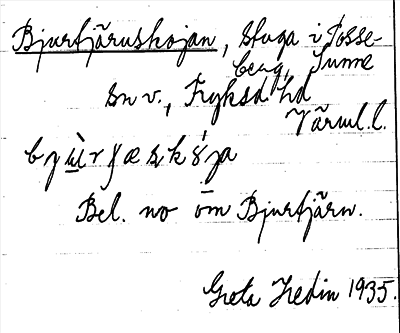 Bjurtjärnskojan, stuga i Tosse-
berg, Sunne
sn v., Fryksd hd
Värml. l.
Bel. no om Bjurtjärn.
Greta Hedin 1935.